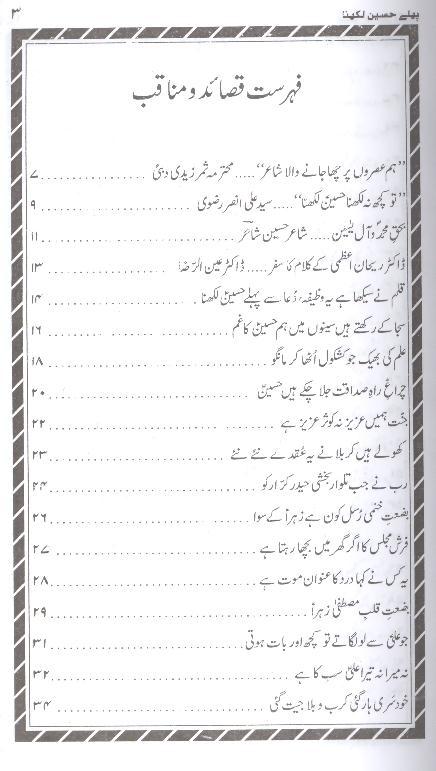 ۳ پہلے حسین لکھنا
فہرست قصائد و مناقب
”ہم عصروں پر چھا جانے والا شاعر“..... محترمہ ثمر زیدی دہئی ..................... ۷
”تو کچھ نہ لکھنا حسینؑ لکھنا“..... سید علی انصر رضوی ..................... ۹
بحقِ محمدؐ و آلِ یٰسینؑ ..... شاعر حسین شاعرؔ ..................... ۱۱
ڈاکٹر ریحان اعظمی کے کلام کا سفر ..... ڈاکٹر عین الرّضا ..................... ۱۳
قلم نے سیکھا ہے یہ وظیفہ، دُعا سے پہلے حسینؑ لکھنا ..................... ۱۴
سجا کے رکھتے ہیں سینوں میں ہم حسینؑ کا غم ..................... ۱۶
علم کی بھیک جو کشکول اُٹھا کر مانگو ..................... ۱۸
چراغِ راہِ صداقت جلا چکے ہیں حسینؑ ..................... ۲۰
جنت ہمیں عزیز نہ کوثر عزیز ہے ..................... ۲۲
کھولے ہیں کربلا نے یہ عُقدے نئے نئے ..................... ۲۳
رب نے جب تلوار بخشی حیدرِ کرّارؑ کو ..................... ۲۴
بضعتِ ختمی رُسل کون ہے زہراؑ کے سوا ..................... ۲۶
فرش مجلس کا اگر گھر میں بچھا رہتا ہے ..................... ۲۷
یہ کس نے کہا درد کا عنوان موت ہے ..................... ۲۸
بضعتِ قلبِ مصطفیٰؐ زہراؑ ..................... ۲۹
جو علیؑ سے لو لگاتے تو کچھ اور بات ہوتی ..................... ۳۱
نہ میرا نہ تیرا علیؑ سب کا ہے ..................... ۳۲
خودسَری ہار گئی کرب و بلا جیت گئی ..................... ۳۴